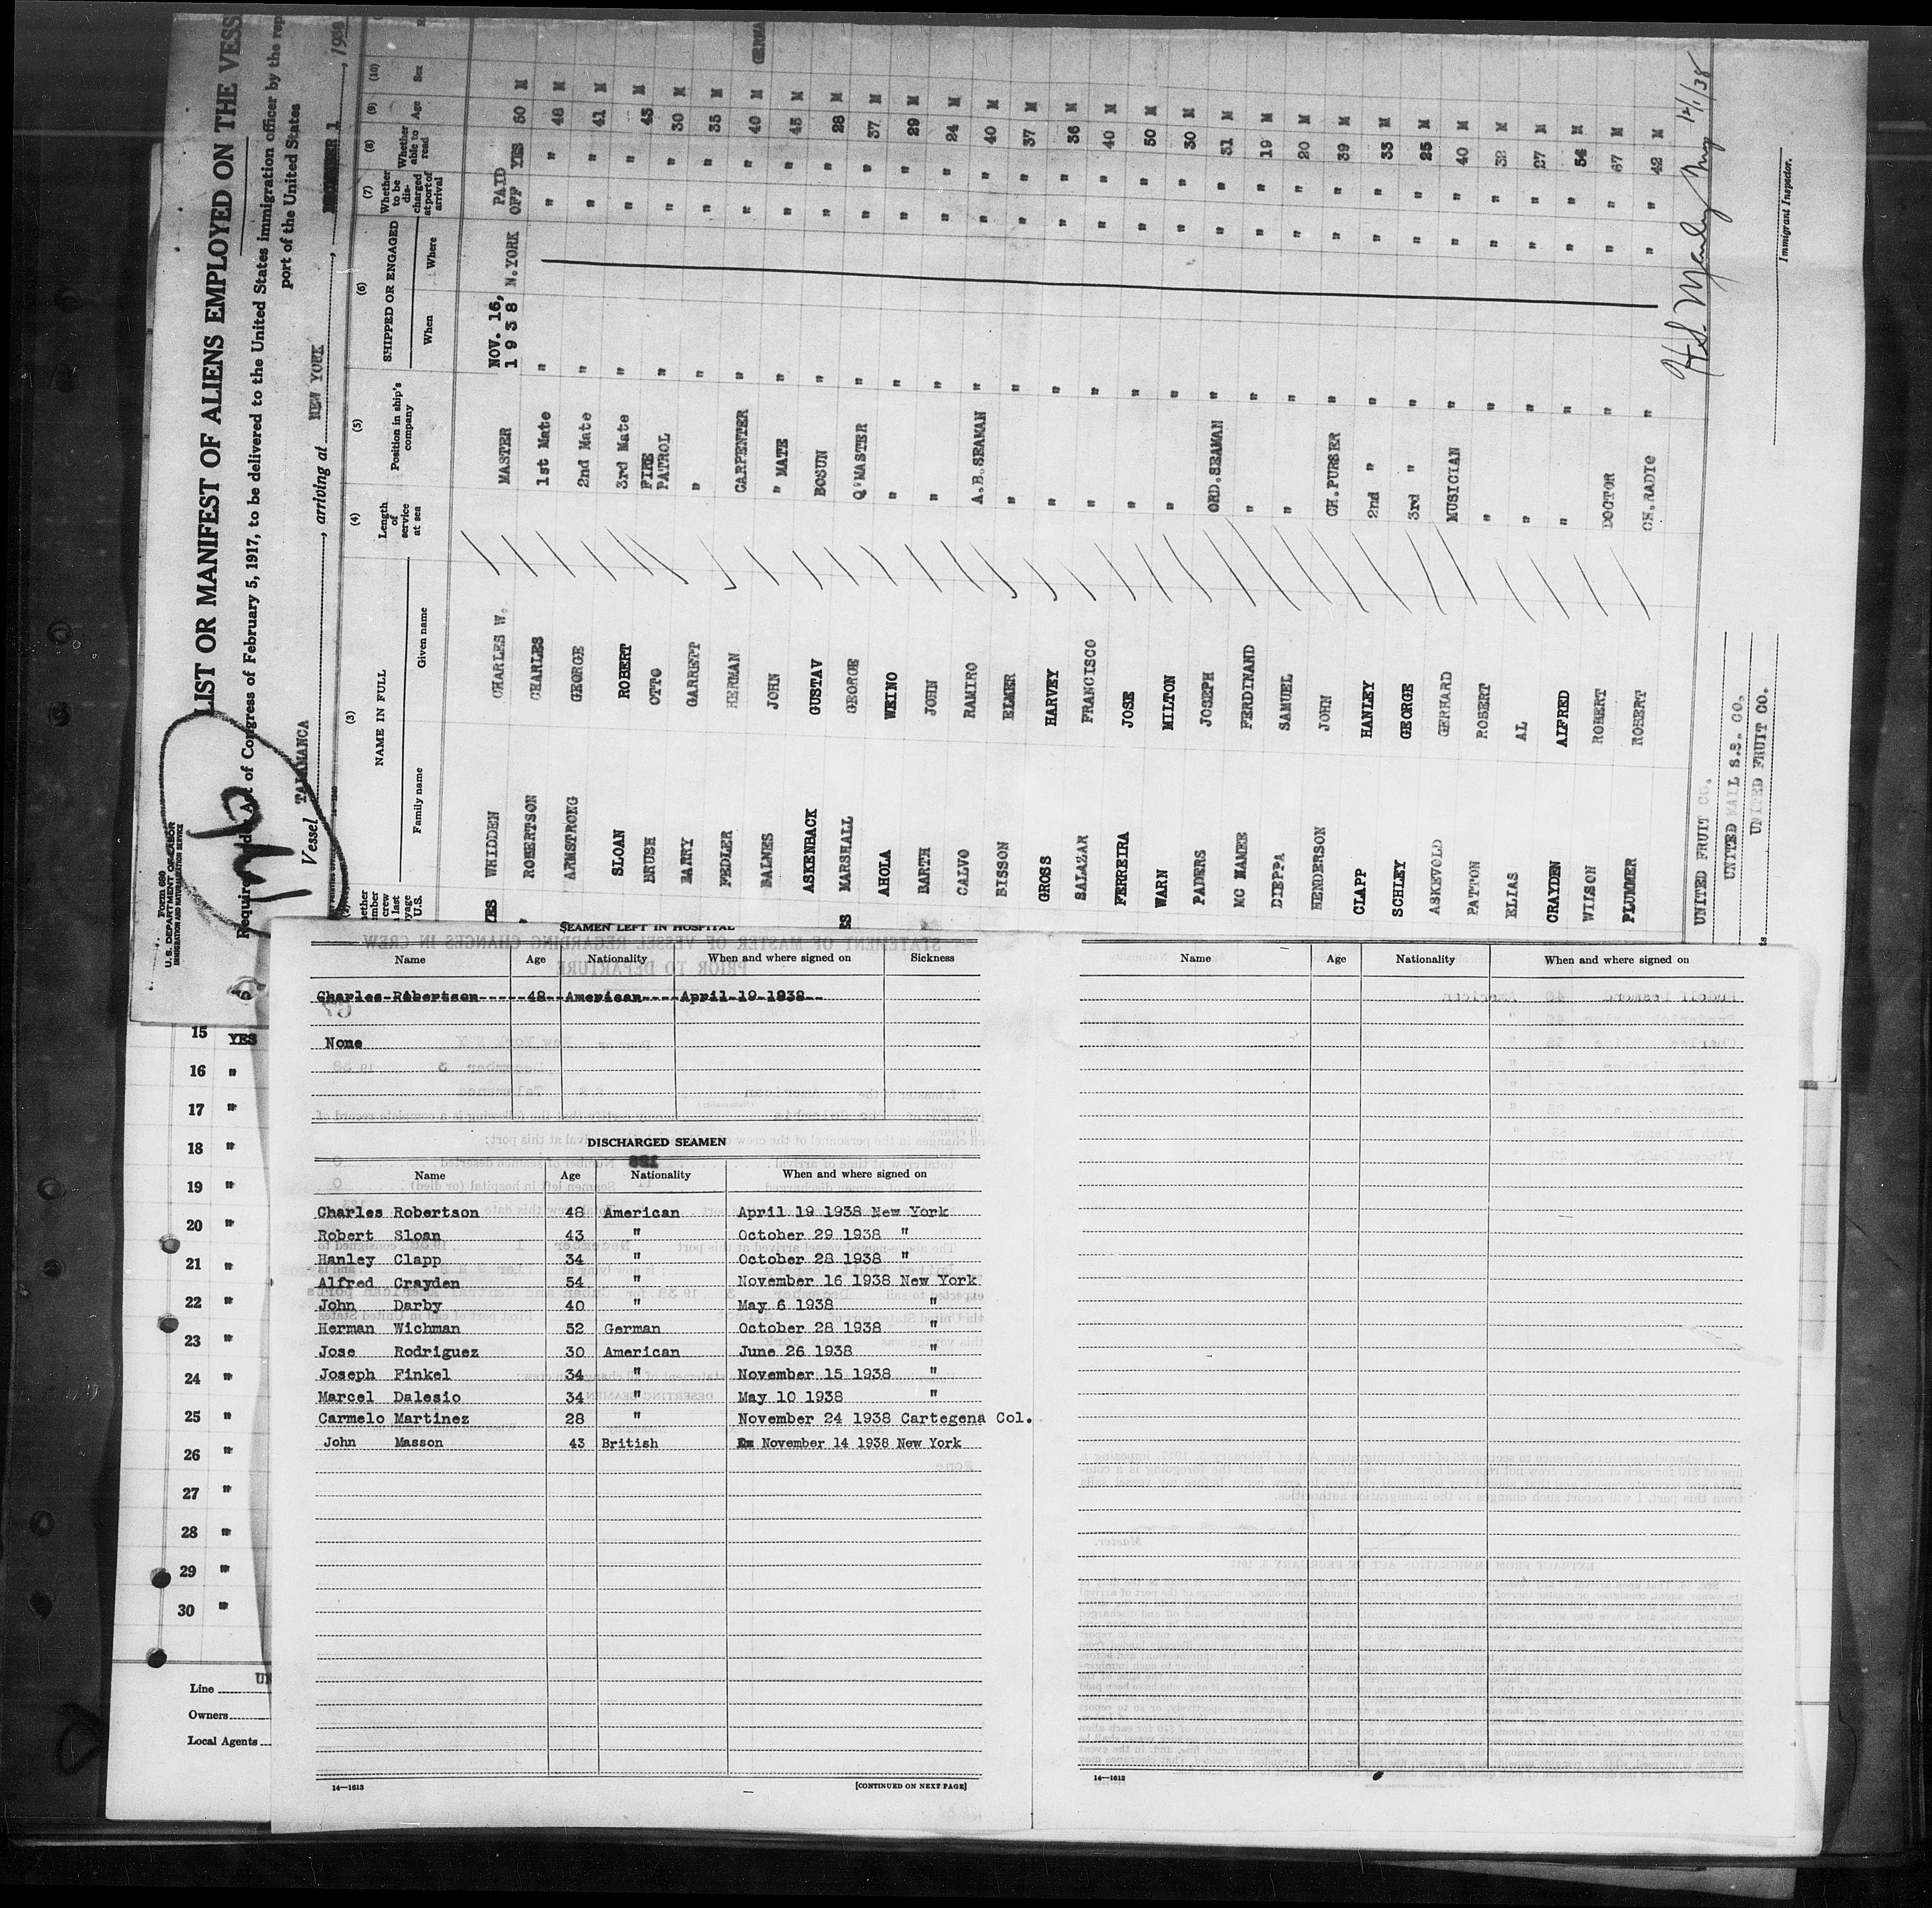 Form 680
U. S. DEPARTMENT OF LABOR
IMMIGRATION AND NATURALIZATION SERVICE
LIST OR MANIFEST OF ALIENS EMPLOYED ON THE VESS
Required under Act of Congress of February 5, 1917, to be delivered to the United States immigration officer by the rep
port of the United States
Vessel TALAMANCA, arriving at NEW YORK, DECEMBER 1, 1938
(3) (4) (5) (6) (7) (8) (9) (10)
NAME IN FULL
Family name Given name
Length of service at sea
Position in ship's company
SHIPPED OR ENGAGED
When Where
Whether to be discharged at port of arrival
Whether able to read
Age
Sex
YES WHIDDEN CHARLES W. MASTER NOV. 16, 1938 N.YORK PAID OFF YES 50 M
" ROBERTSON CHARLES 1st Mate " " " 48 M
ARMSTRONG GEORGE 2nd Mate " " " 41 M
SLOAN ROBERT 3rd Mate " " " 43 M
BRUSH OTTO FIRE PATROL " " " 30 M
BARRY GARRETT " " " " 35 M
FEDLER HERMAN CARPENTER " " " 40 M GERMA
BALNES JOHN " MATE " " " 45 M
ASKENBACK GUSTAV BOSUN " " " 28 M
MARSHALL GEORGE Q'MASTER " " " 37 M
AHOLA WEINO " " " " 29 M
BARTH JOHN " " " " 24 M
CALVO RAMIRO A.B.SEAMAN " " " 40 M
BISSON ELMER " " " " 37 M
GROSS HARVEY " " " " 36 M
SALAZAR FRANCISCO " " " " 40 M
FERREIRA JOSE " " " " 50 M
WARN MILTON " " " " 30 M
PADERS JOSEPH ORD.SEAMAN " " " 31 M
MC NAMEE FERDINAND " " " " 19 M
DIEPPA SAMUEL " " " " 20 M
HENDERSON JOHN CH.PURSER " " " 39 M
CLAPP HANLEY 2nd " " " " 33 M
SCHLEY GEORGE 3rd " " " " 25 M
ASKEVOLD GERHARD MUSICIAN " " " 40 M
PATTON ROBERT " " " " 32 M
ELIAS AL " " " " 27 M
CRAYDEN ALFRED " " " " 54 M
WILSON ROBERT DOCTOR " " " 67 M
PLUMMER ROBERT CH.RADIO " " " 42 M
12/1/38
Immigrant Inspector.
UNITED FRUIT CO.
UNITED MAIL S.S. CO.
UNITED FRUIT CO.
SEAMEN LEFT IN HOSPITAL
Name Age Nationality When and where signed on Sickness
Charles Robertson 48 American April 19 1938
None
DISCHARGED SEAMEN
Name Age Nationality When and where signed on
Charles Robertson 48 American April 19 1938 New York
Robert Sloan 43 " October 29 1938 "
Hanley Clapp 34 " October 28 1938 "
Alfred Crayden 54 " November 16 1938 New York
John Darby 40 " May 6 1938 "
Herman Wichman 52 German October 28 1938 "
Jose Rodriguez 30 American June 26 1938 "
Joseph Finkel 34 " November 15 1938 "
Marcel Dalesio 34 " May 10 1938 "
Carmelo Martinez 28 " November 24 1938 Cartegena Col.
John Masson 43 British November 14 1938 New York
14—1613
[CONTINUED ON NEXT PAGE]
Name Age Nationality When and where signed on
14—1613
15 YES
16 "
17 "
18 "
19 "
20 "
21 "
22 "
23 "
24 "
25 "
26 "
27 "
28 "
29 "
30 "
Line UN
Owners
Local Agents